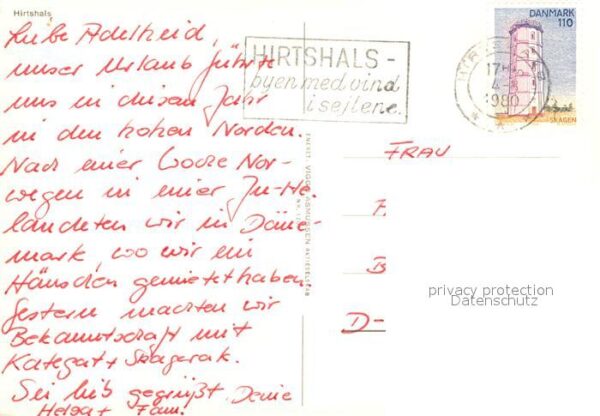 Hirtshals
Liebe Adelheid,
unser Urlaub führte
uns in diesem Jahr
in den hohen Norden.
Nach einer Woche Nor-
wegen in einer Ju-He.
landeten wir in Däne-
mark, wo wir ein
Häuschen gemietet haben.
Gestern machten wir
Bekanntschaft mit
Kategat + Skagerak.
Sei lieb gegrüßt, Deine
Helga + Fam.
HIRTSHALS -
byen med vind
i sejlene.
1980
DANMARK
110
SKAGEN
FRAU
F.
B
D-
privacy protection
Datenschutz